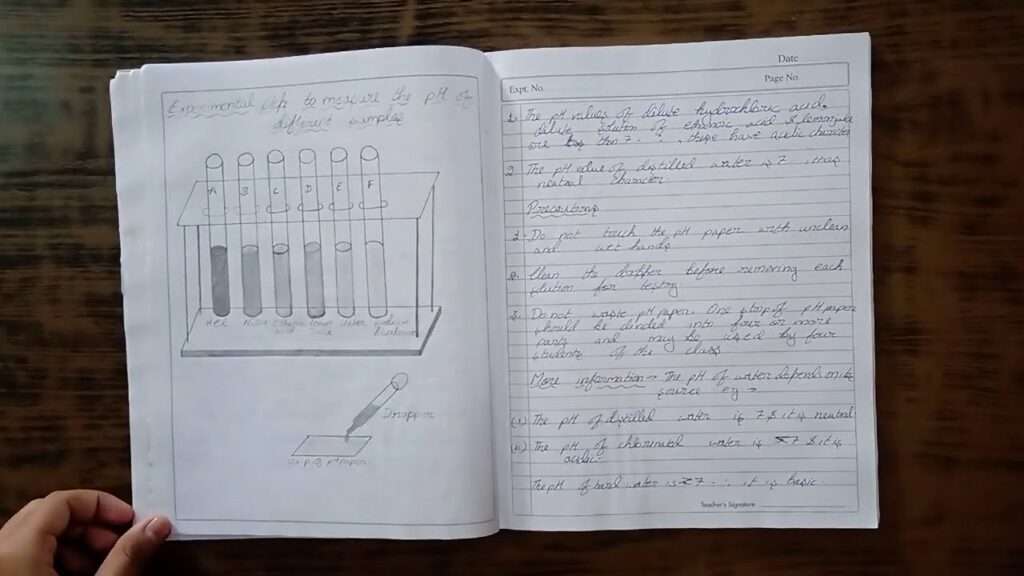 Experimental step to measure the pH of
different samples
A B C D E F
HCl NaOH Ethanoic acid Lemon juice Water Sodium Bicarbonate
Dropper
pH Paper
Date
Expt. No.
Page No.
1. The pH values of dilute hydrochloric acid,
dilute solution of ethanoic acid & lemon juice
are less than 7 ∴ these have acidic character
2. The pH value of distilled water is 7 has
neutral character
Precautions
1. Do not touch the pH paper with unclean
and wet hands
2. Clean the dropper before removing each
solution for testing
3. Do not waste pH paper. One strip of pH paper
should be divided into four or more
parts and may be used by four
students of the class
More information → The pH of water depends on its
source eg →
The pH of distilled water is 7 & it is neutral
The pH of chlorinated water is <7 & it is
acidic
The pH of hard water is >7 ∴ it is basic
Teacher's Signature